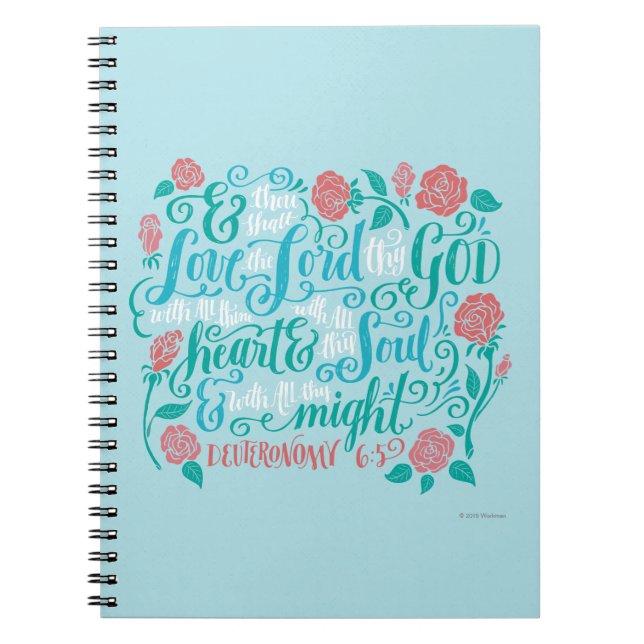 & thou shalt
Love the Lord thy GOD
with All thine heart & with All thy Soul
& with All thy might
DEUTERONOMY 6:5
© 2015 Workman